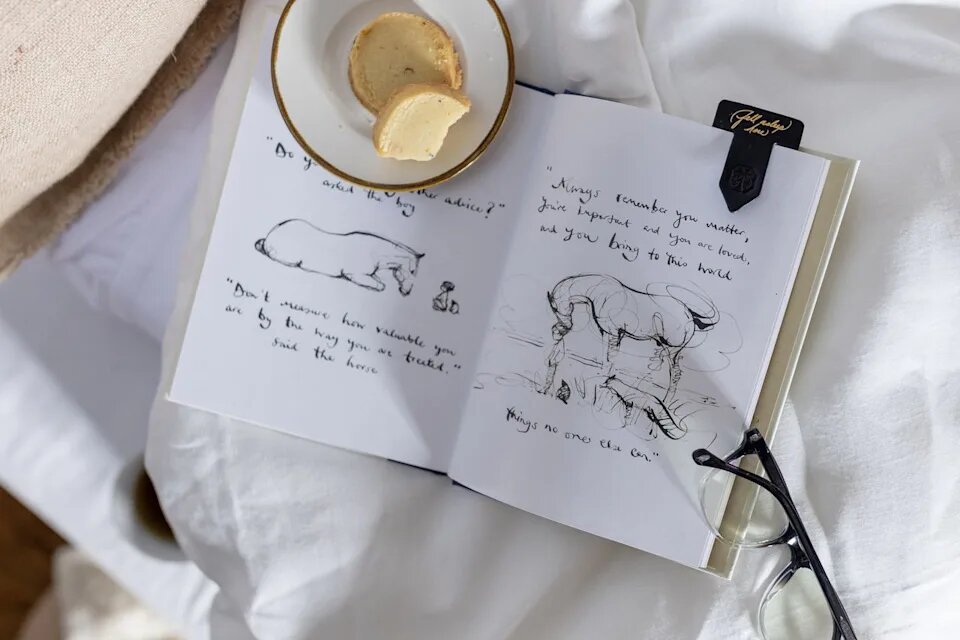 "Do y
other advice?"
asked the boy
"Don't measure how valuable you
are by the way you are treated."
said the horse
"Always remember you matter,
you're important and you are loved,
and you bring to this world
things no one else can."